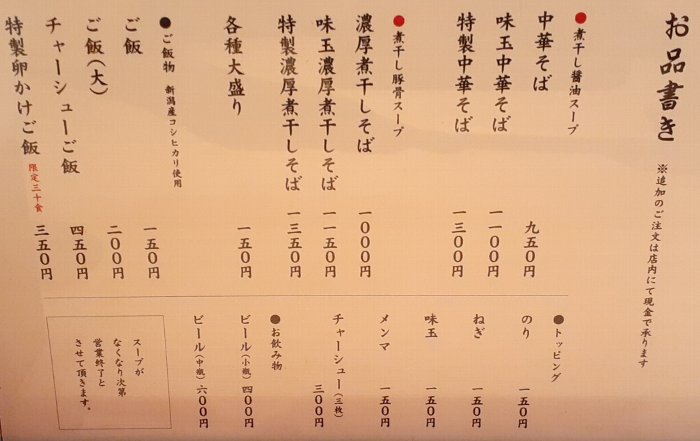 お品書き
※追加のご注文は店内にて現金で承ります
●煮干し醤油スープ
中華そば 九五〇円
味玉中華そば 一一〇〇円
特製中華そば 一三〇〇円
●煮干し豚骨スープ
濃厚煮干しそば 一〇〇〇円
味玉濃厚煮干しそば 一一五〇円
特製濃厚煮干しそば 一三五〇円
各種大盛り 一五〇円
●ご飯物 新潟産コシヒカリ使用
ご飯 一五〇円
ご飯(大) 二〇〇円
チャーシューご飯 四五〇円
特製卵かけご飯 限定三十食 三五〇円
●トッピング
のり 一五〇円
ねぎ 一五〇円
味玉 一五〇円
メンマ 一五〇円
チャーシュー(三枚) 三〇〇円
●お飲み物
ビール(小瓶) 四〇〇円
ビール(中瓶) 六〇〇円
スープが
なくなり次第
営業終了と
させて頂きます。